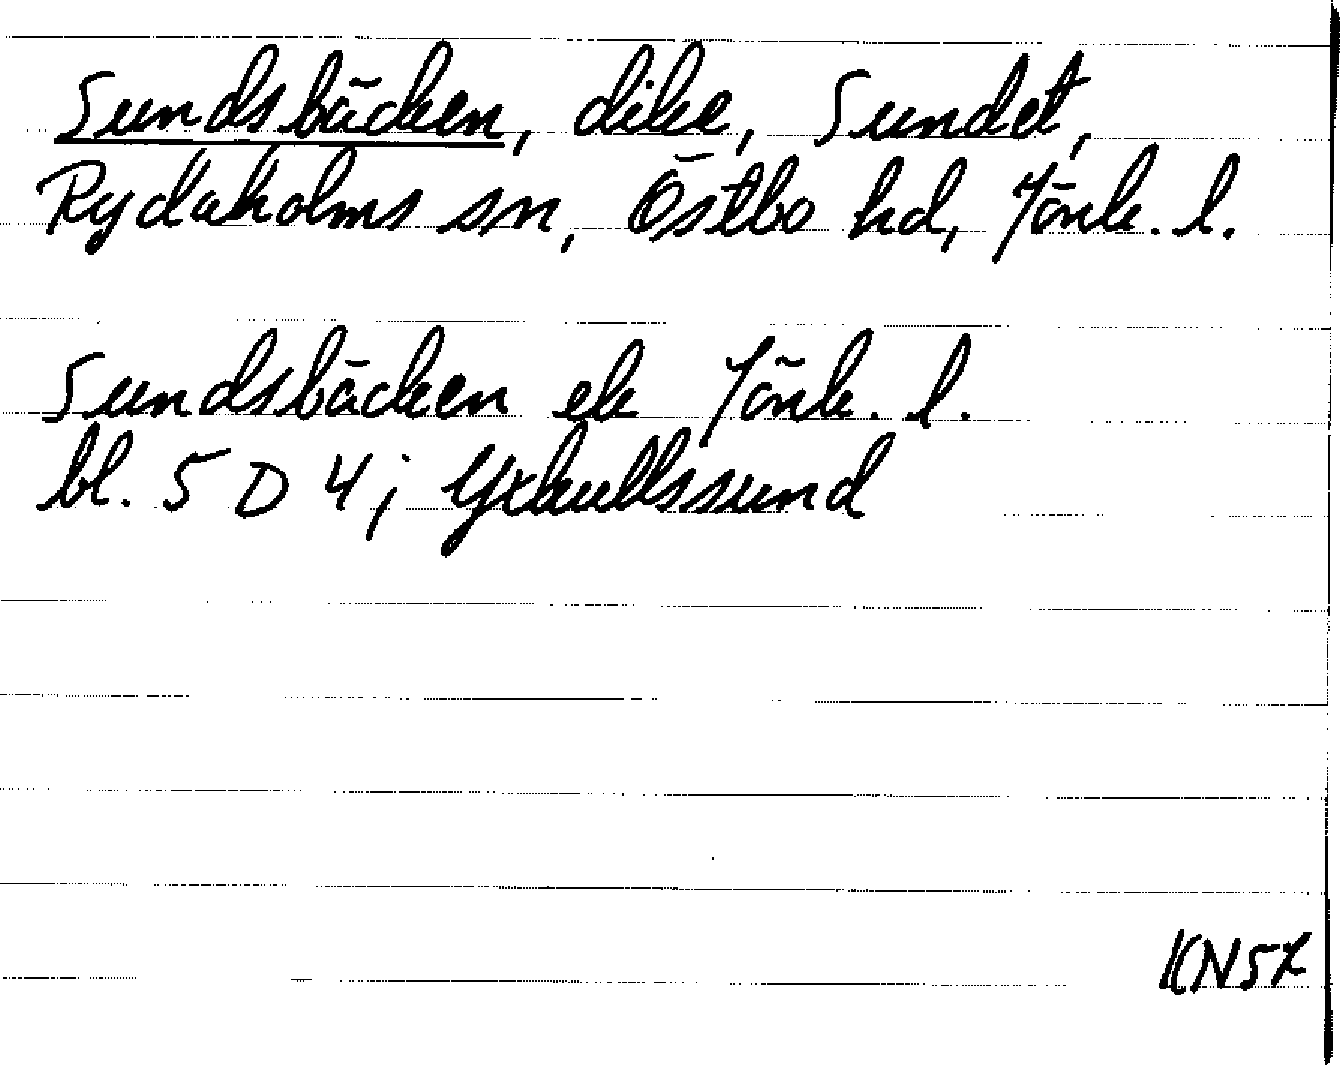 Sundsbäcken, dike, Sundet,
Rydaholms sn, Östbo hd, Jönk. l.
Sundsbäcken ek Jönk. l.
bl. 5 D 4; Yxkullssund
KN57